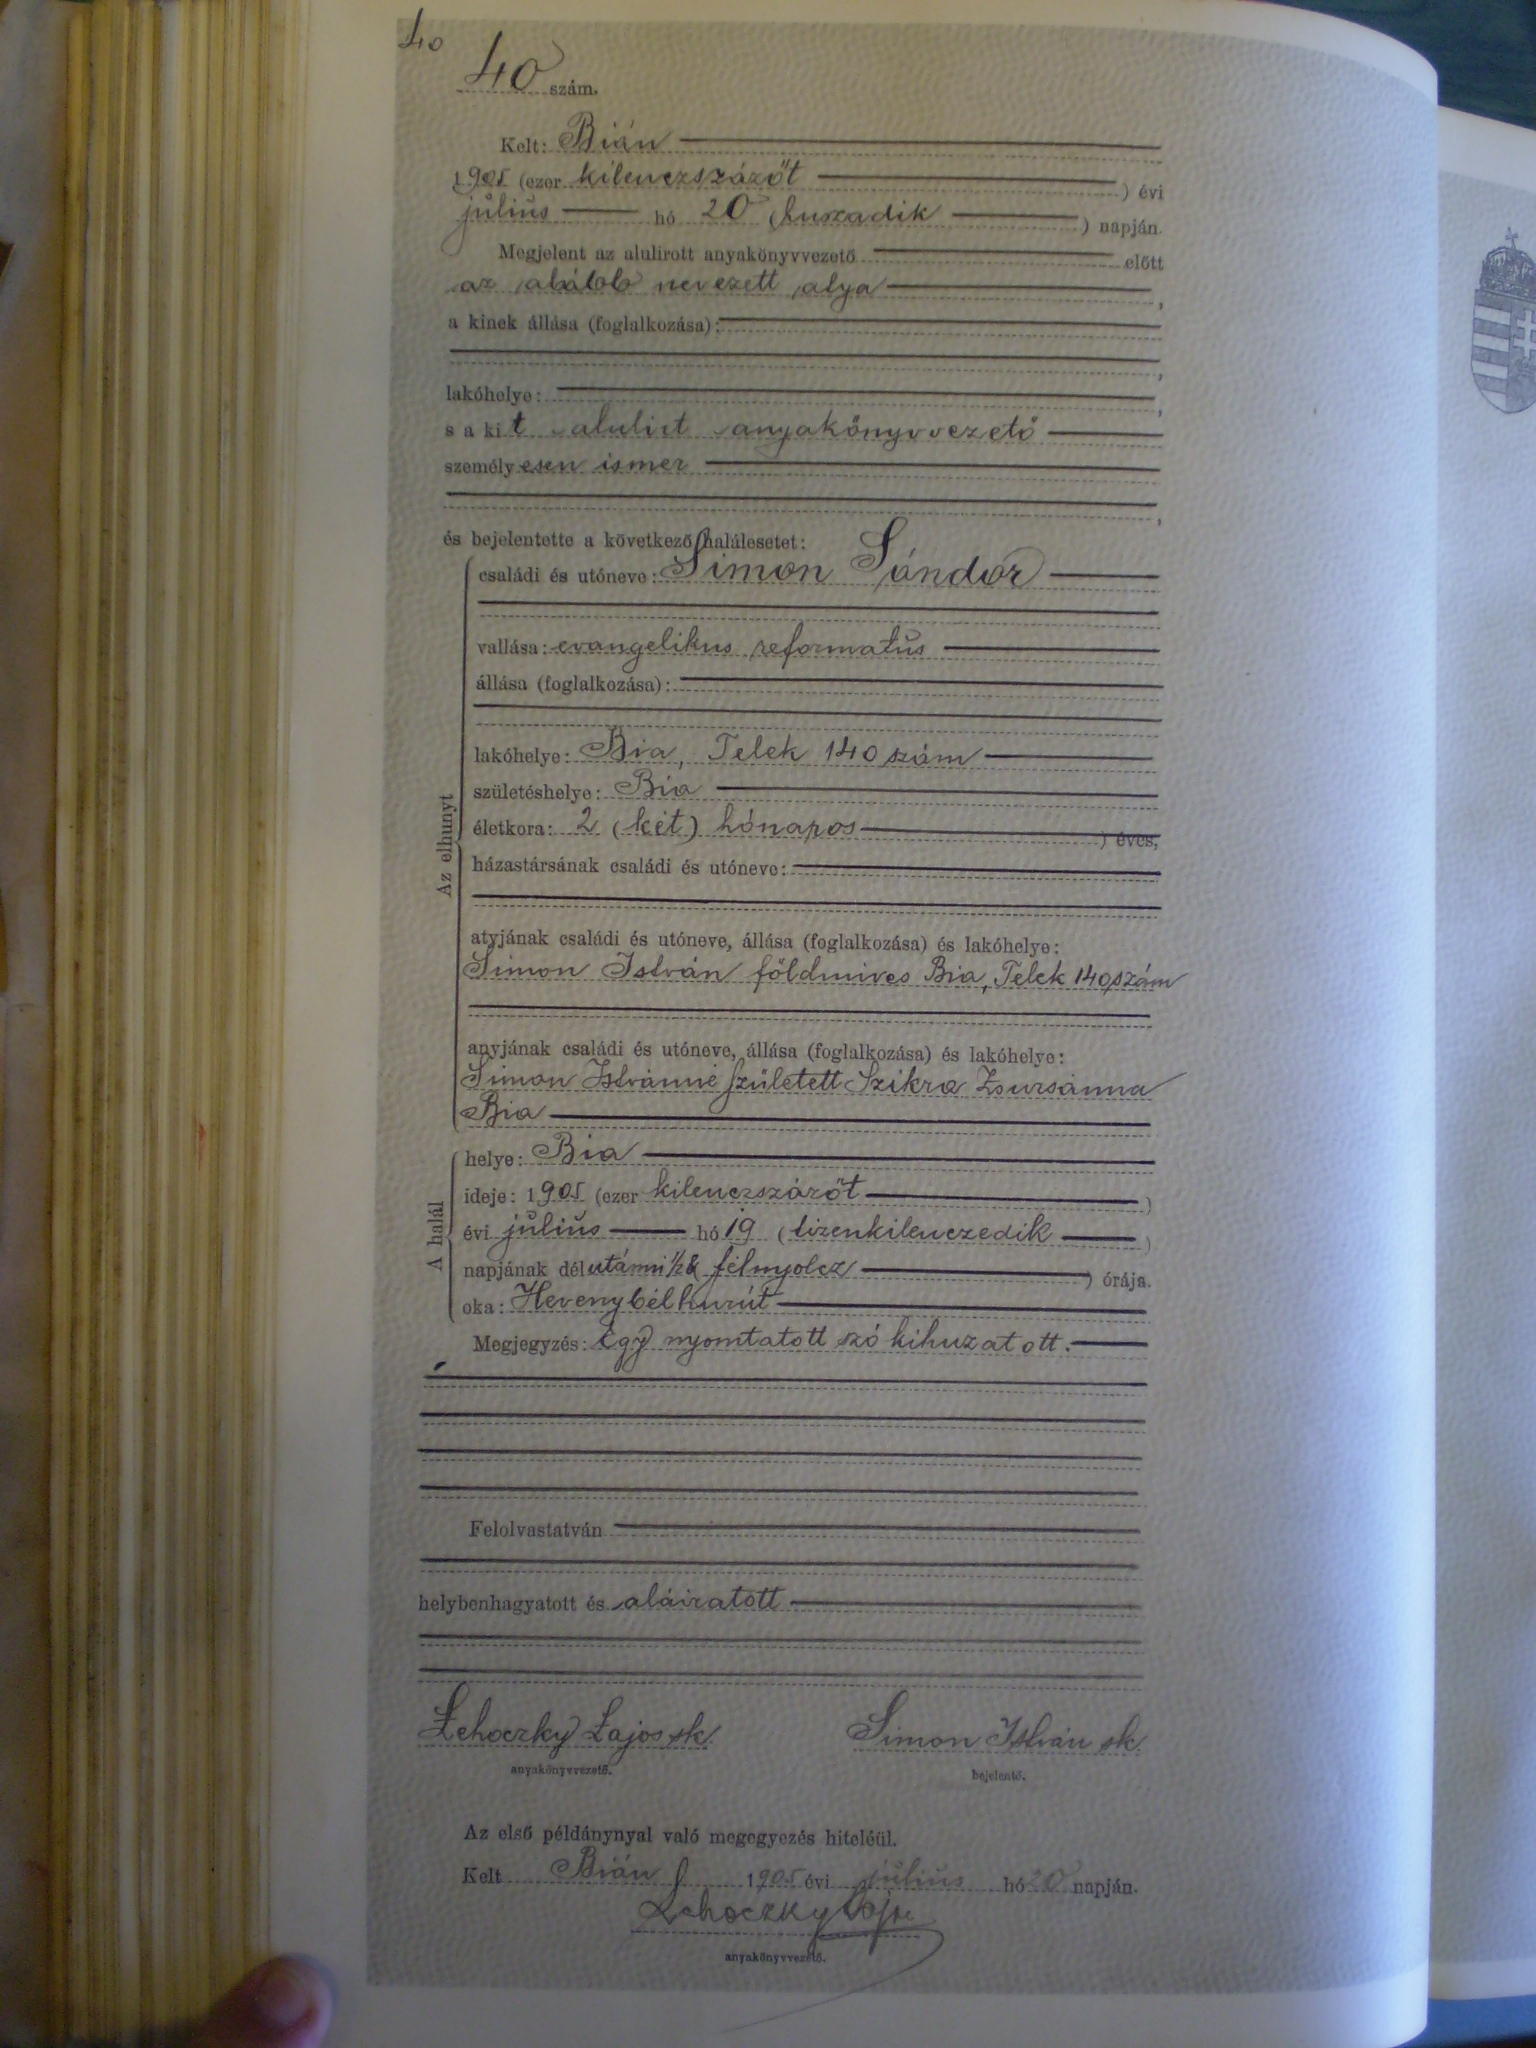 40
40 szám.
Kelt: Bián
1905 (ezer kilenczszázöt ) évi
július hó 20 (huszadik ) napján.
Megjelent az alulirott anyakönyvvezető előtt
az alább nevezett atya ,
a kinek állása (foglalkozása):
,
lakóhelye: ,
s a kit alulirt anyakönyvvezető
személyesen ismer
,
és bejelentette a következő halálesetet:
Az elhunyt
családi és utóneve: Simon Sándor
vallása: evangelikus reformatus
állása (foglalkozása):
lakóhelye: Bia, Telek 140 szám
születéshelye: Bia
életkora: 2 (két) hónapos ) éves,
házastársának családi és utóneve:
atyjának családi és utóneve, állása (foglalkozása) és lakóhelye:
Simon István földmives Bia, Telek 140 szám
anyjának családi és utóneve, állása (foglalkozása) és lakóhelye:
Simon Istvánné született Szikra Zsuzsánna
Bia
A halál
helye: Bia
ideje: 1905 (ezer kilenczszázöt )
évi július hó 19 (tizenkilenczedik )
napjának délutánni 1/2 8 félnyolcz ) órája.
oka: Heveny bélhurút
Megjegyzés: Egy nyomtatott szó kihuzatott.
Felolvastatván
helybenhagyatott és aláiratott
Lehoczky Lajos sk. Simon István sk.
anyakönyvvezető. bejelentő.
Az első példánynyal való megegyezés hiteléül.
Kelt Bián 1905 évi július hó 20 napján.
Lehoczky Lajos
anyakönyvvezető.